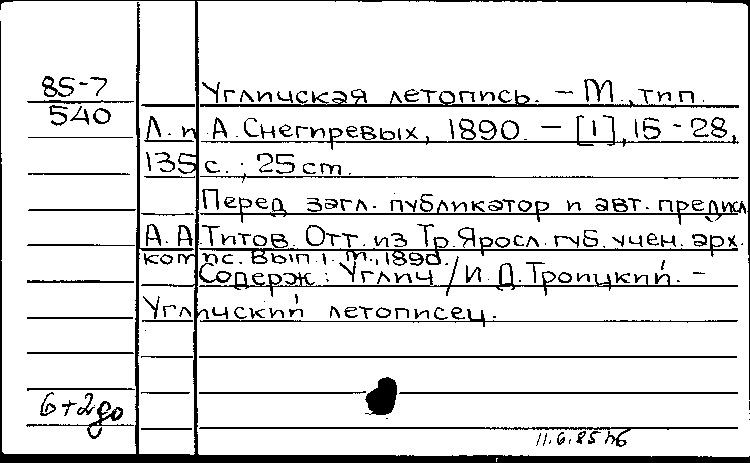 85-7
540
Угличская летопись. – М., тип.
Л. и А. Снегиревых, 1890. – [1], 15-28,
135 с. ; 25 cm.
Перед загл. публикатор и авт. предисл.
А.А Титов. Отт. из Тр. Яросл. губ. учен. арх.
комис. Вып. 1. М., 1890.
Содерж: Углич / И. Д. Троицкий. –
Угличский летописец.
6+2до
11.6.85